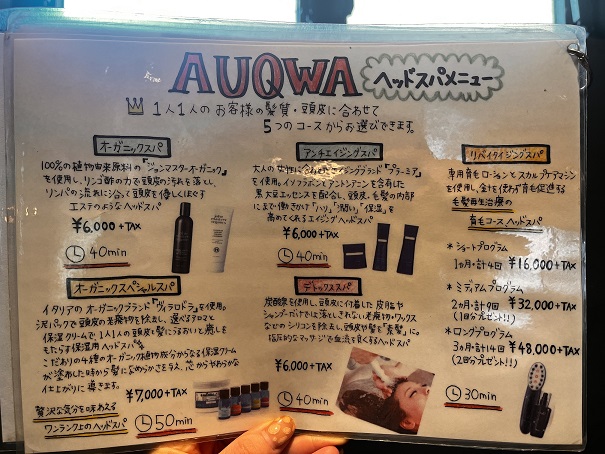 AUQWA ヘッドスパメニュー
1人1人のお客様の髪質・頭皮に合わせて
5つのコースからお選びできます。
オーガニックスパ
100%の植物由来原料の『ジョンマスターオーガニック』
を使用し、リンゴ酢の力で頭皮の汚れを落とし、
リンパの流れに沿って頭皮を優しくほぐす
エステのようなヘッドスパ
¥6,000+TAX
40min
アンチエイジングスパ
大人の女性に合わせたエイジングブランド『プラーミア』
を使用。イソフラボンとアントシアニンを含有した
黒大豆エッセンスを配合し、頭皮、毛髪の内部
にまで働きかけ「ハリ」「潤い」「保湿」を
高めてくれるエイジングヘッドスパ
¥6,000+TAX
40min
リバイタイジングスパ
専用育毛ローションとスカルプケアマシン
を使用し、金を使わず育毛促進する
毛髪再生治療の
育毛コースヘッドスパ
* ショートプログラム
1ヵ月・計4回 ¥16,000+TAX
* ミディアムプログラム
2ヵ月・計9回 ¥32,000+TAX
(1回分プレゼント!!)
* ロングプログラム
3ヵ月・計14回 ¥48,000+TAX
(2回分プレゼント!!)
30min
オーガニックスペシャルスパ
イタリアのオーガニックブランド『ヴィラロドラ』を使用。
泥パックで頭皮の老廃物を除去し、選べるアロマと
保湿クリームで1人1人の頭皮と髪にうるおいと癒しを
もたらす保湿用ヘッドスパ
こだわりの4種のオーガニック植物成分からなる保湿クリーム
が塗布した時から髪になめらかさを与え、芯からやわらかな
仕上がりに導きます。
¥7,000+TAX
贅沢な気分を味わえる
ワンランク上のヘッドスパ
50min
デトックススパ
炭酸泉を使用し、頭皮に付着した皮脂や
シャンプーだけでは落としきれない老廃物・ワックス
などのシリコンを除去し、頭皮や髪を「素髪」に。
指圧的なマッサージで血流を良くするヘッドスパ
¥6,000+TAX
40min